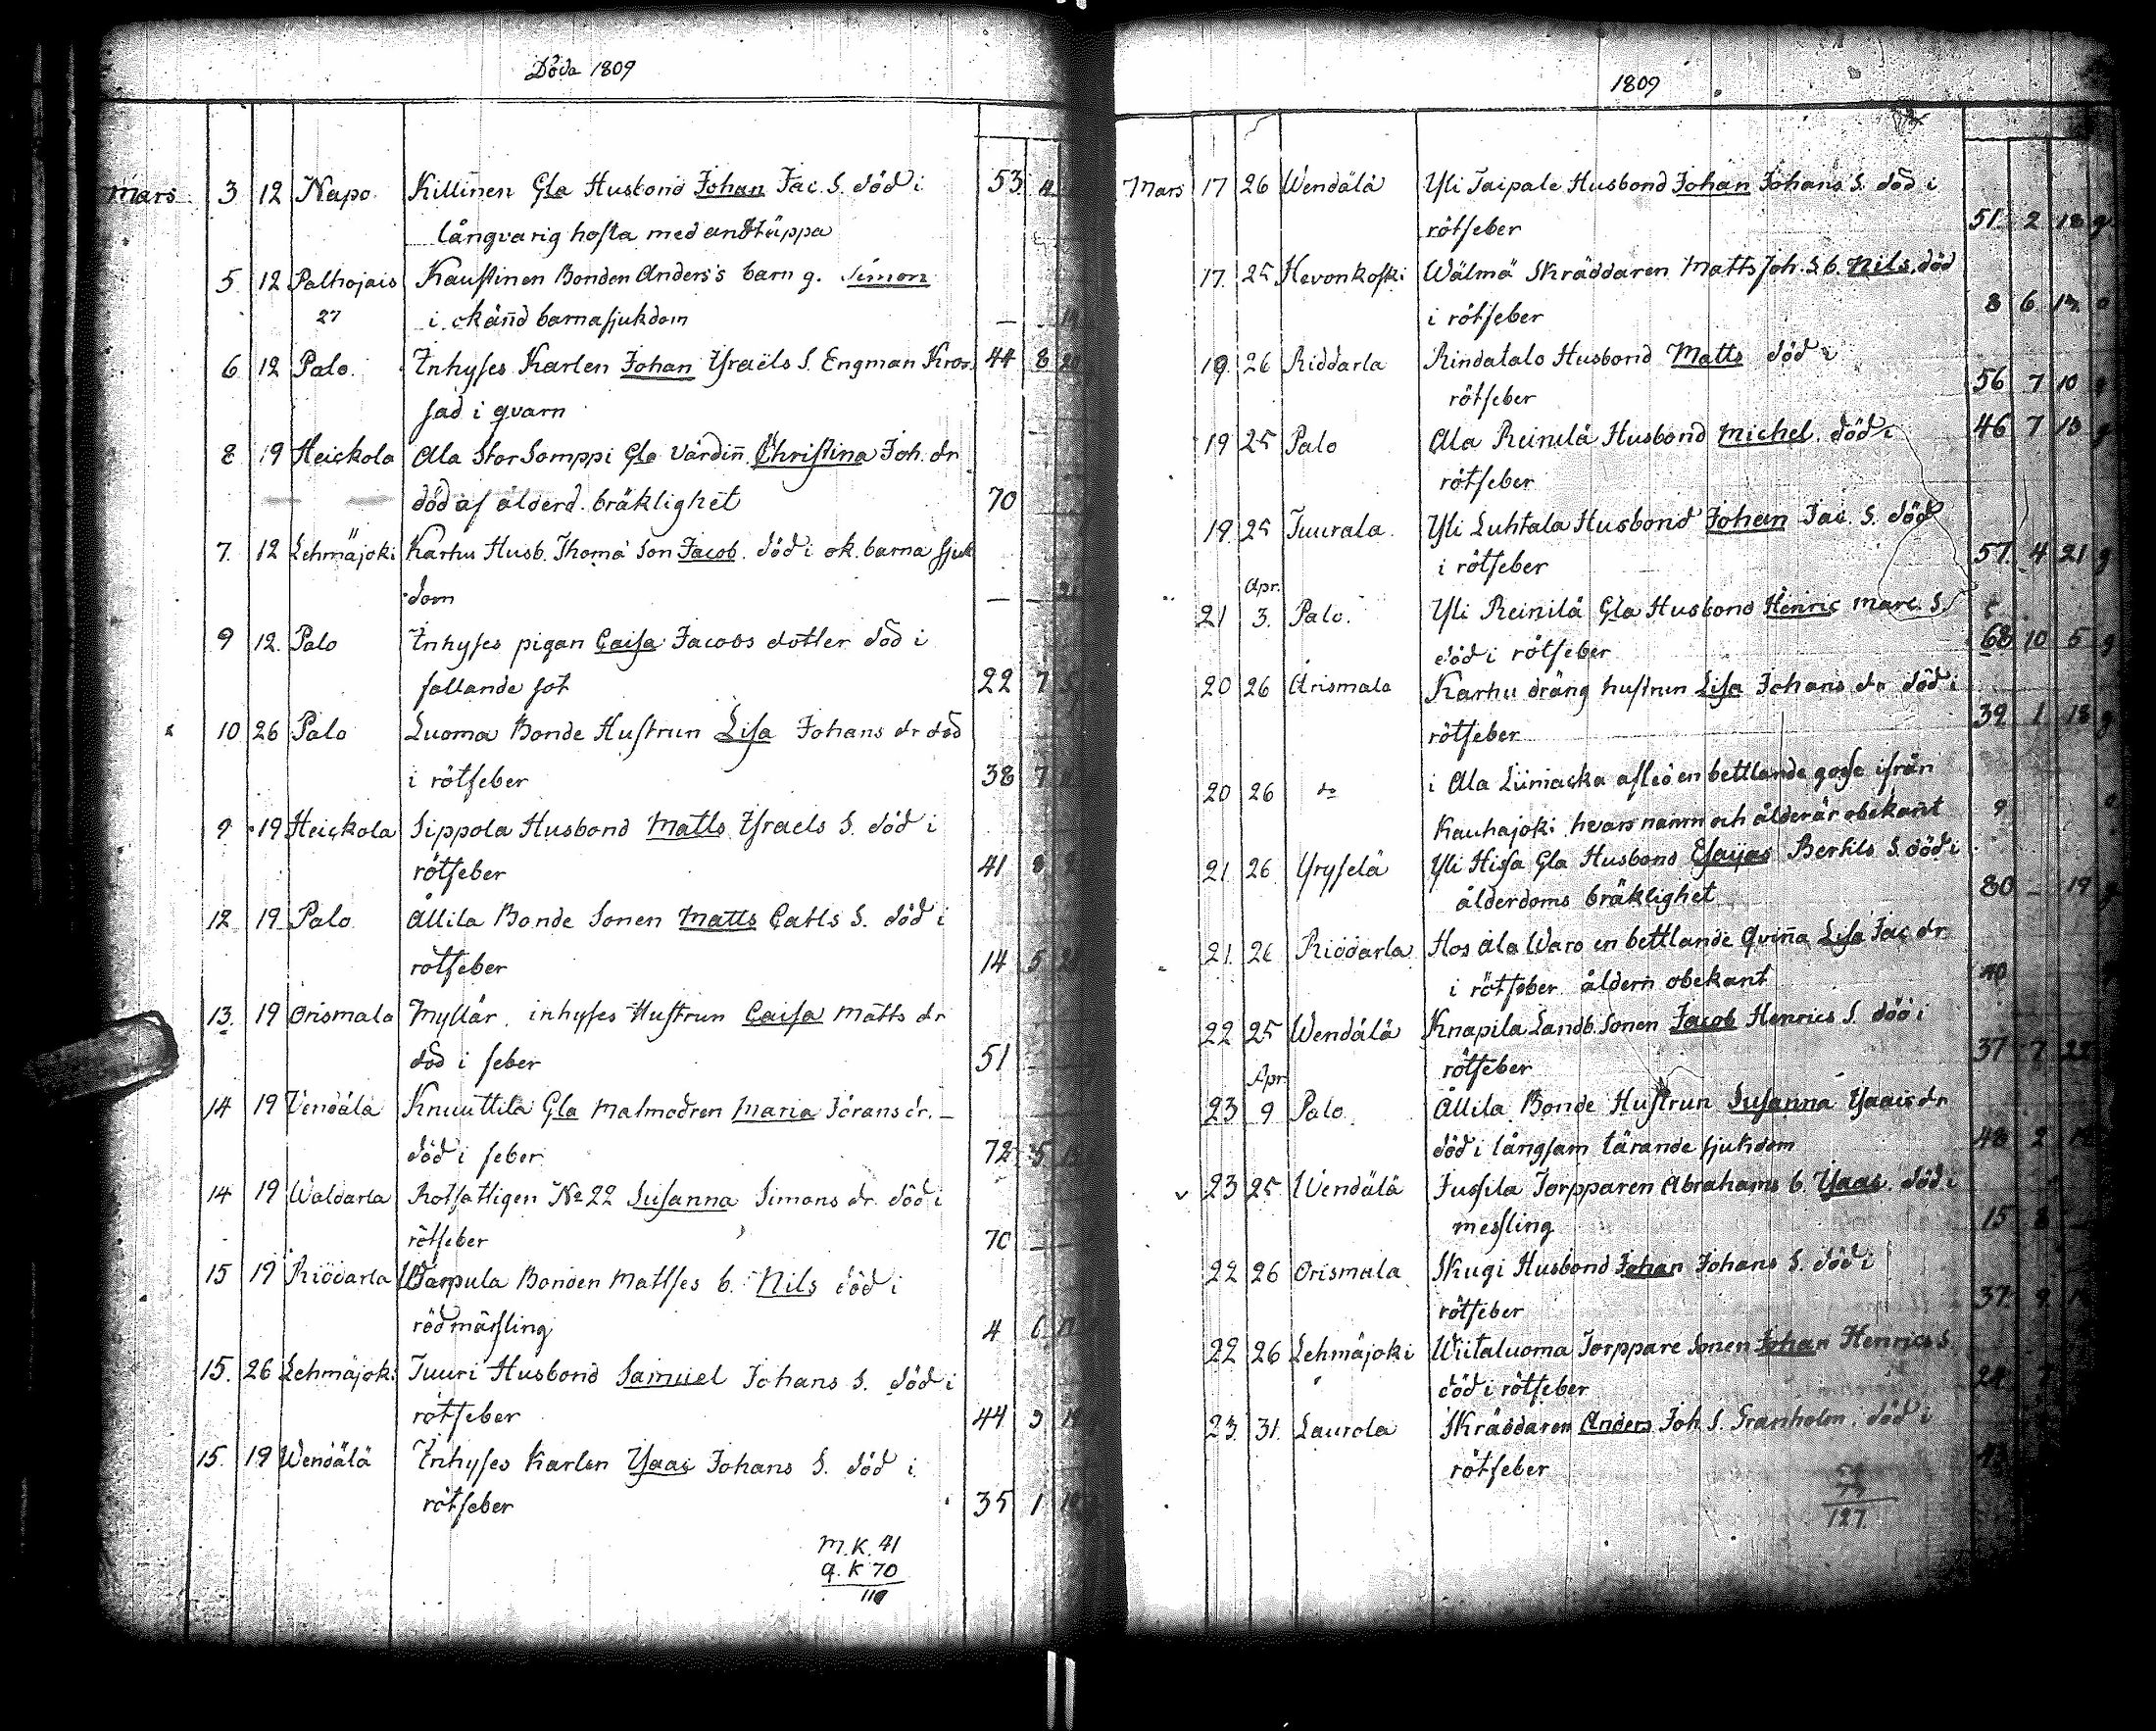 Döda 1809
Mars 3 12 Napo Killinen Gla Husbond Johan Jac. S. död i 53
långvarig hosta med andtäppa
5 12 Palhojais Kaustinen Bonden Anders's barn g. Simon
27 i. okänd barnasjukdom —
6 12 Palo. Inhyses Karlen Johan Ysraëls S. Engman Kros- 44 8 20
sad i qvarn
8 19 Heickola Ala StorSomppi Gla värdiñ. Christina Joh. dr
död af ålderd. bräklighet 70
7. 12 Lehmäjoki Karhu Husb. Thomä Son Jacob. död i ok. barna sjuk
dom — —
9 12. Palo Inhyses pigan Caisa Jacobs dotter död i
fallande sot 22 7
10 26 Palo Luoma Bonde Hustrun Lisa Johans dr död
i rötfeber 38 7
9 19 Heickola Sippola Husbond Matts Ysraels S. död i
rötfeber 41 8
12 19 Palo Ällila Bonde Sonen Matts Carls S. död i
rötfeber 14 5
13. 19 Orismala Myllär. inhyses Hustrun Caisa Matts dr
död i feber 51
14 19 Vendälä Knuuttila Gla Malmodren Maria Jörans dr. —
död i feber 72 5
14 19 Waldarla Rotfattigen No 22 Susanna Simons dr. död i
rötfeber 70 —
15 19 Riddarla Warpula Bonden Mattses b. Nils död i
röd mässling 4 6
15. 26 Lehmäjoki Tuuri Husbond Samuel Johans S. död i
rötfeber 44 3
15. 19 Wendälä Inhyses Karlen Ysaac Johans S. död i
rötfeber 35 1
M.K. 41
Q.K 70
110
1809
Mars 17 26 Wendälä Yli Taipale Husbond Johan Johans S. död i
rötfeber 51 2 18 g
17. 25 Hevonkoski Wälmä Skräddaren Matts Joh. S. b. Nils. död
i rötfeber 8 6
19. 26 Riddarla Rindatalo Husbond Matts död i
rötfeber 56 7 10 g
19 25 Palo Ala Reinilä Husbond Michel. död i 46 7 13 g
rötfeber
19. 25 Tuurala. Yli Luhtala Husbond Johan Jac. S. död
i rötfeber 57. 4 21 g
Apr.
21 3. Palo. Yli Reinilä Gla Husbond Henric Marc. S.
död i rötfeber 68 10 5 g
20 26 Orismala Karhu dräng hustrun Lisa Johans dr död i
rötfeber 39 1 18 g
20 26 do i Ala Liinacka afled en bettlande gosse ifrån
Kauhajoki hvars namn och ålder är obekant 9
21. 26 Yryselä Yli Hissa Gla Husbond Esaijas Bertils S. död i
ålderdoms bräklighet 80 — 19 g
21. 26 Riddarla Hos Ala Waro en bettlande Qviña Lisa Jac dr
i rötfeber åldern obekant 40
22 25 Wendälä Knapila Landb. Sonen Jacob Henrics S. död i
rötfeber 37 7
Apr
23 9 Palo. Ällila Bonde Hustrun Susanna Ysaacs dr
död i långsam tärande sjukdom 48 2
23 25 Wendälä Jussila Torpparen Abrahams b. Ysaac. död i
messling 15 8 —
22 26 Orismala Skugi Husbond Johan Johans S. död i
rötfeber 37. 9
22 26 Lehmäjoki Wiitaluoma Torppare Sonen Johan Henrics S.
död i rötfeber 7
23. 31. Laurola Skräddaren Anders Joh. S. Granholm. död i
rötfeber
127